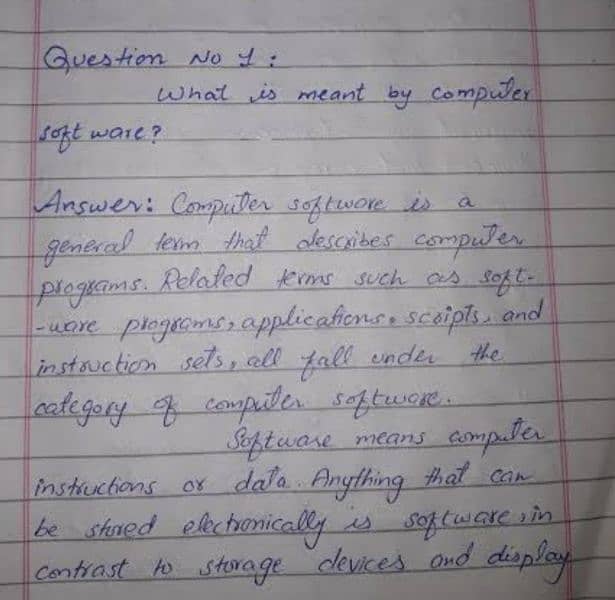 Question No 1 :
What is meant by computer
soft ware?
Answer: Computer software is a
general term that describes computer
programs. Related terms such as soft-
-ware programs, applications, scripts, and
instruction sets, all fall under the
category of computer software.
Software means computer
instructions or data. Anything that can
be stored electronically is software, in
contrast to storage devices and display